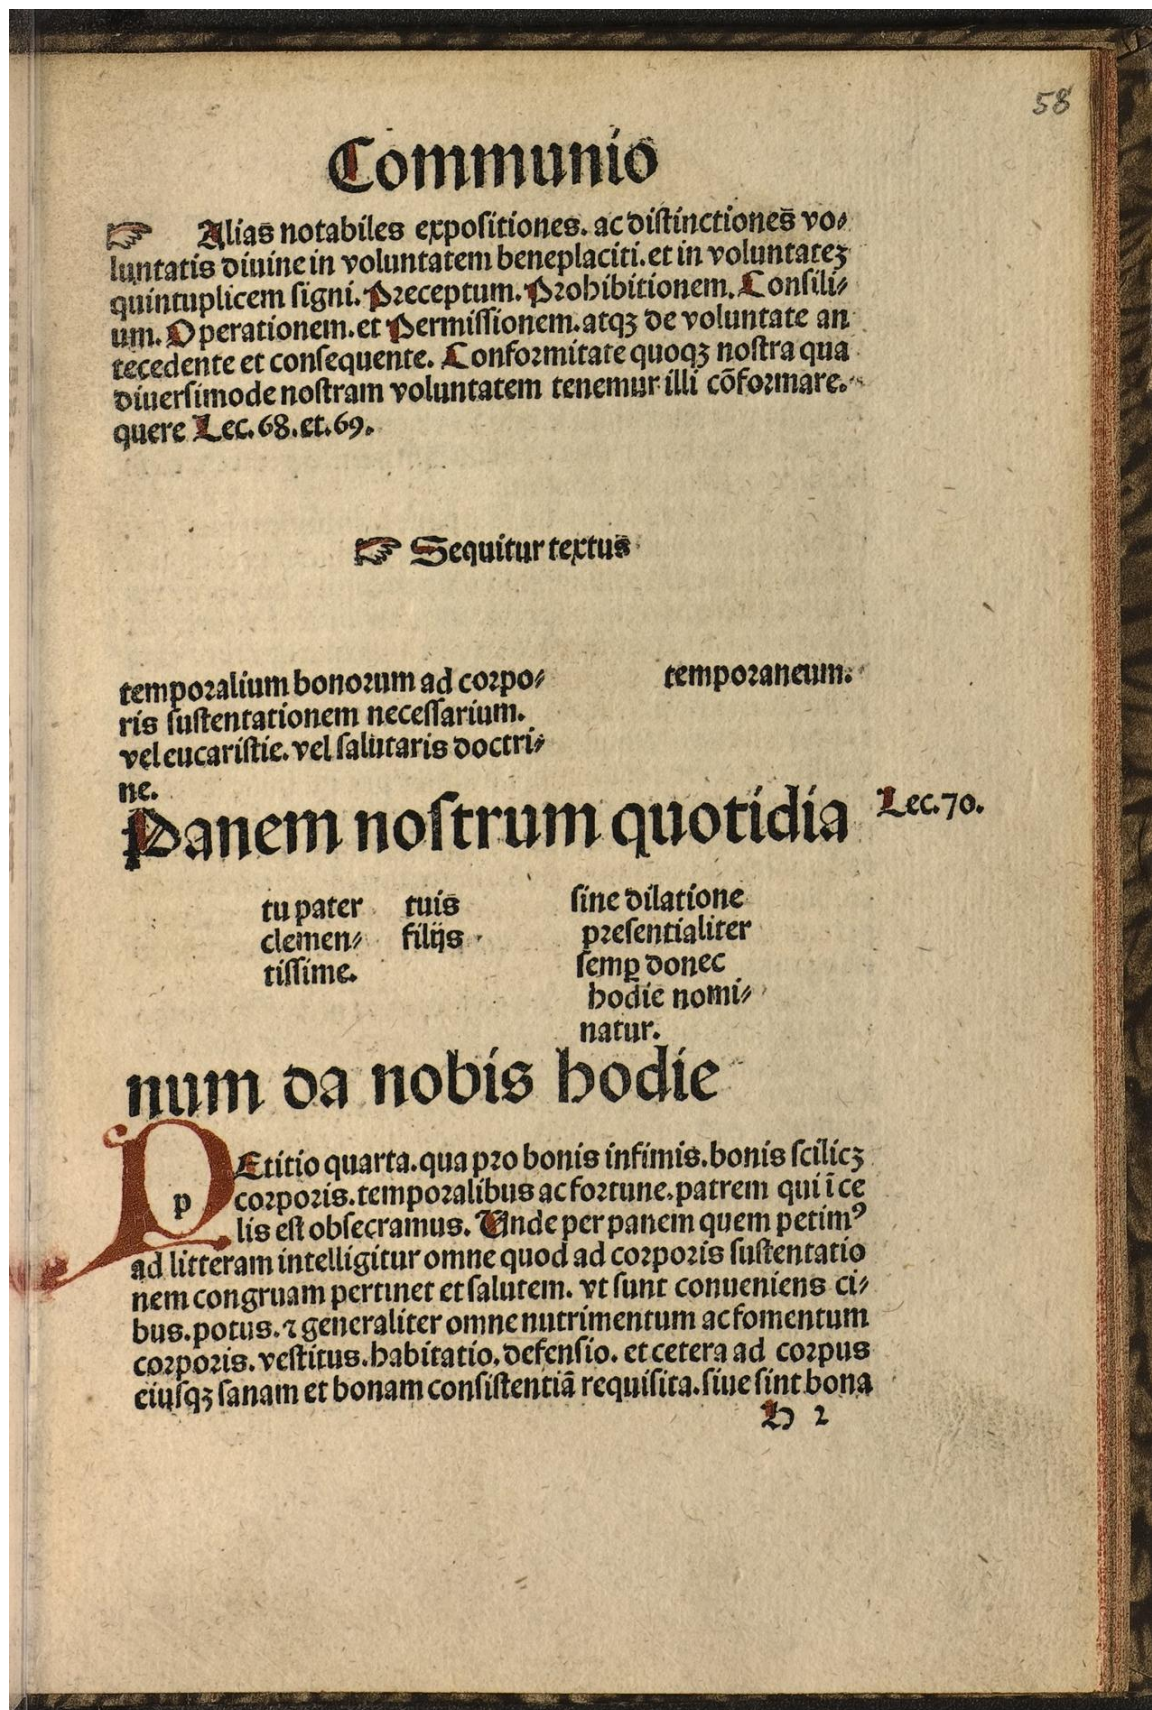 58
Communio
☞ Alias notabiles expoſitiones. ac diſtinctiones vo⸗
luntatis diuine in voluntatem beneplaciti. et in voluntateꝫ
quintuplicem ſigni. Preceptum. Prohibitionem. Conſili⸗
um. Operationem. et Permiſſionem. atqꝫ de voluntate an
tecedente et conſequente. Conformitate quoqꝫ noſtra qua
diuerſimode noſtram voluntatem tenemur illi cõformare.
quere Lec. 68. et. 69.
☞ Sequitur textus
temporalium bonorum ad corpo⸗ temporaneum.
ris ſuſtentationem neceſſarium.
vel eucariſtie. vel ſalutaris doctri⸗
ne.
Panem noſtrum quotidia Lec. 70.
tu pater tuis ſine dilatione
clemen⸗ filijs preſentialiter
tiſſime. ſemꝑ donec
hodie nomi⸗
natur.
num da nobis hodie
PEtitio quarta. qua pro bonis infimis. bonis ſcilicꝫ
p corporis. temporalibus ac fortune. patrem qui ī ce
lis eſt obſecramus. Unde per panem quem petimꝰ
ad litteram intelligitur omne quod ad corporis ſuſtentatio
nem congruam pertinet et ſalutem. vt ſunt conueniens ci⸗
bus. potus. ⁊ generaliter omne nutrimentum ac fomentum
corporis. veſtitus. habitatio. defenſio. et cetera ad corpus
eiuſqꝫ ſanam et bonam conſiſtentiã requiſita. ſiue ſint bona
H 2